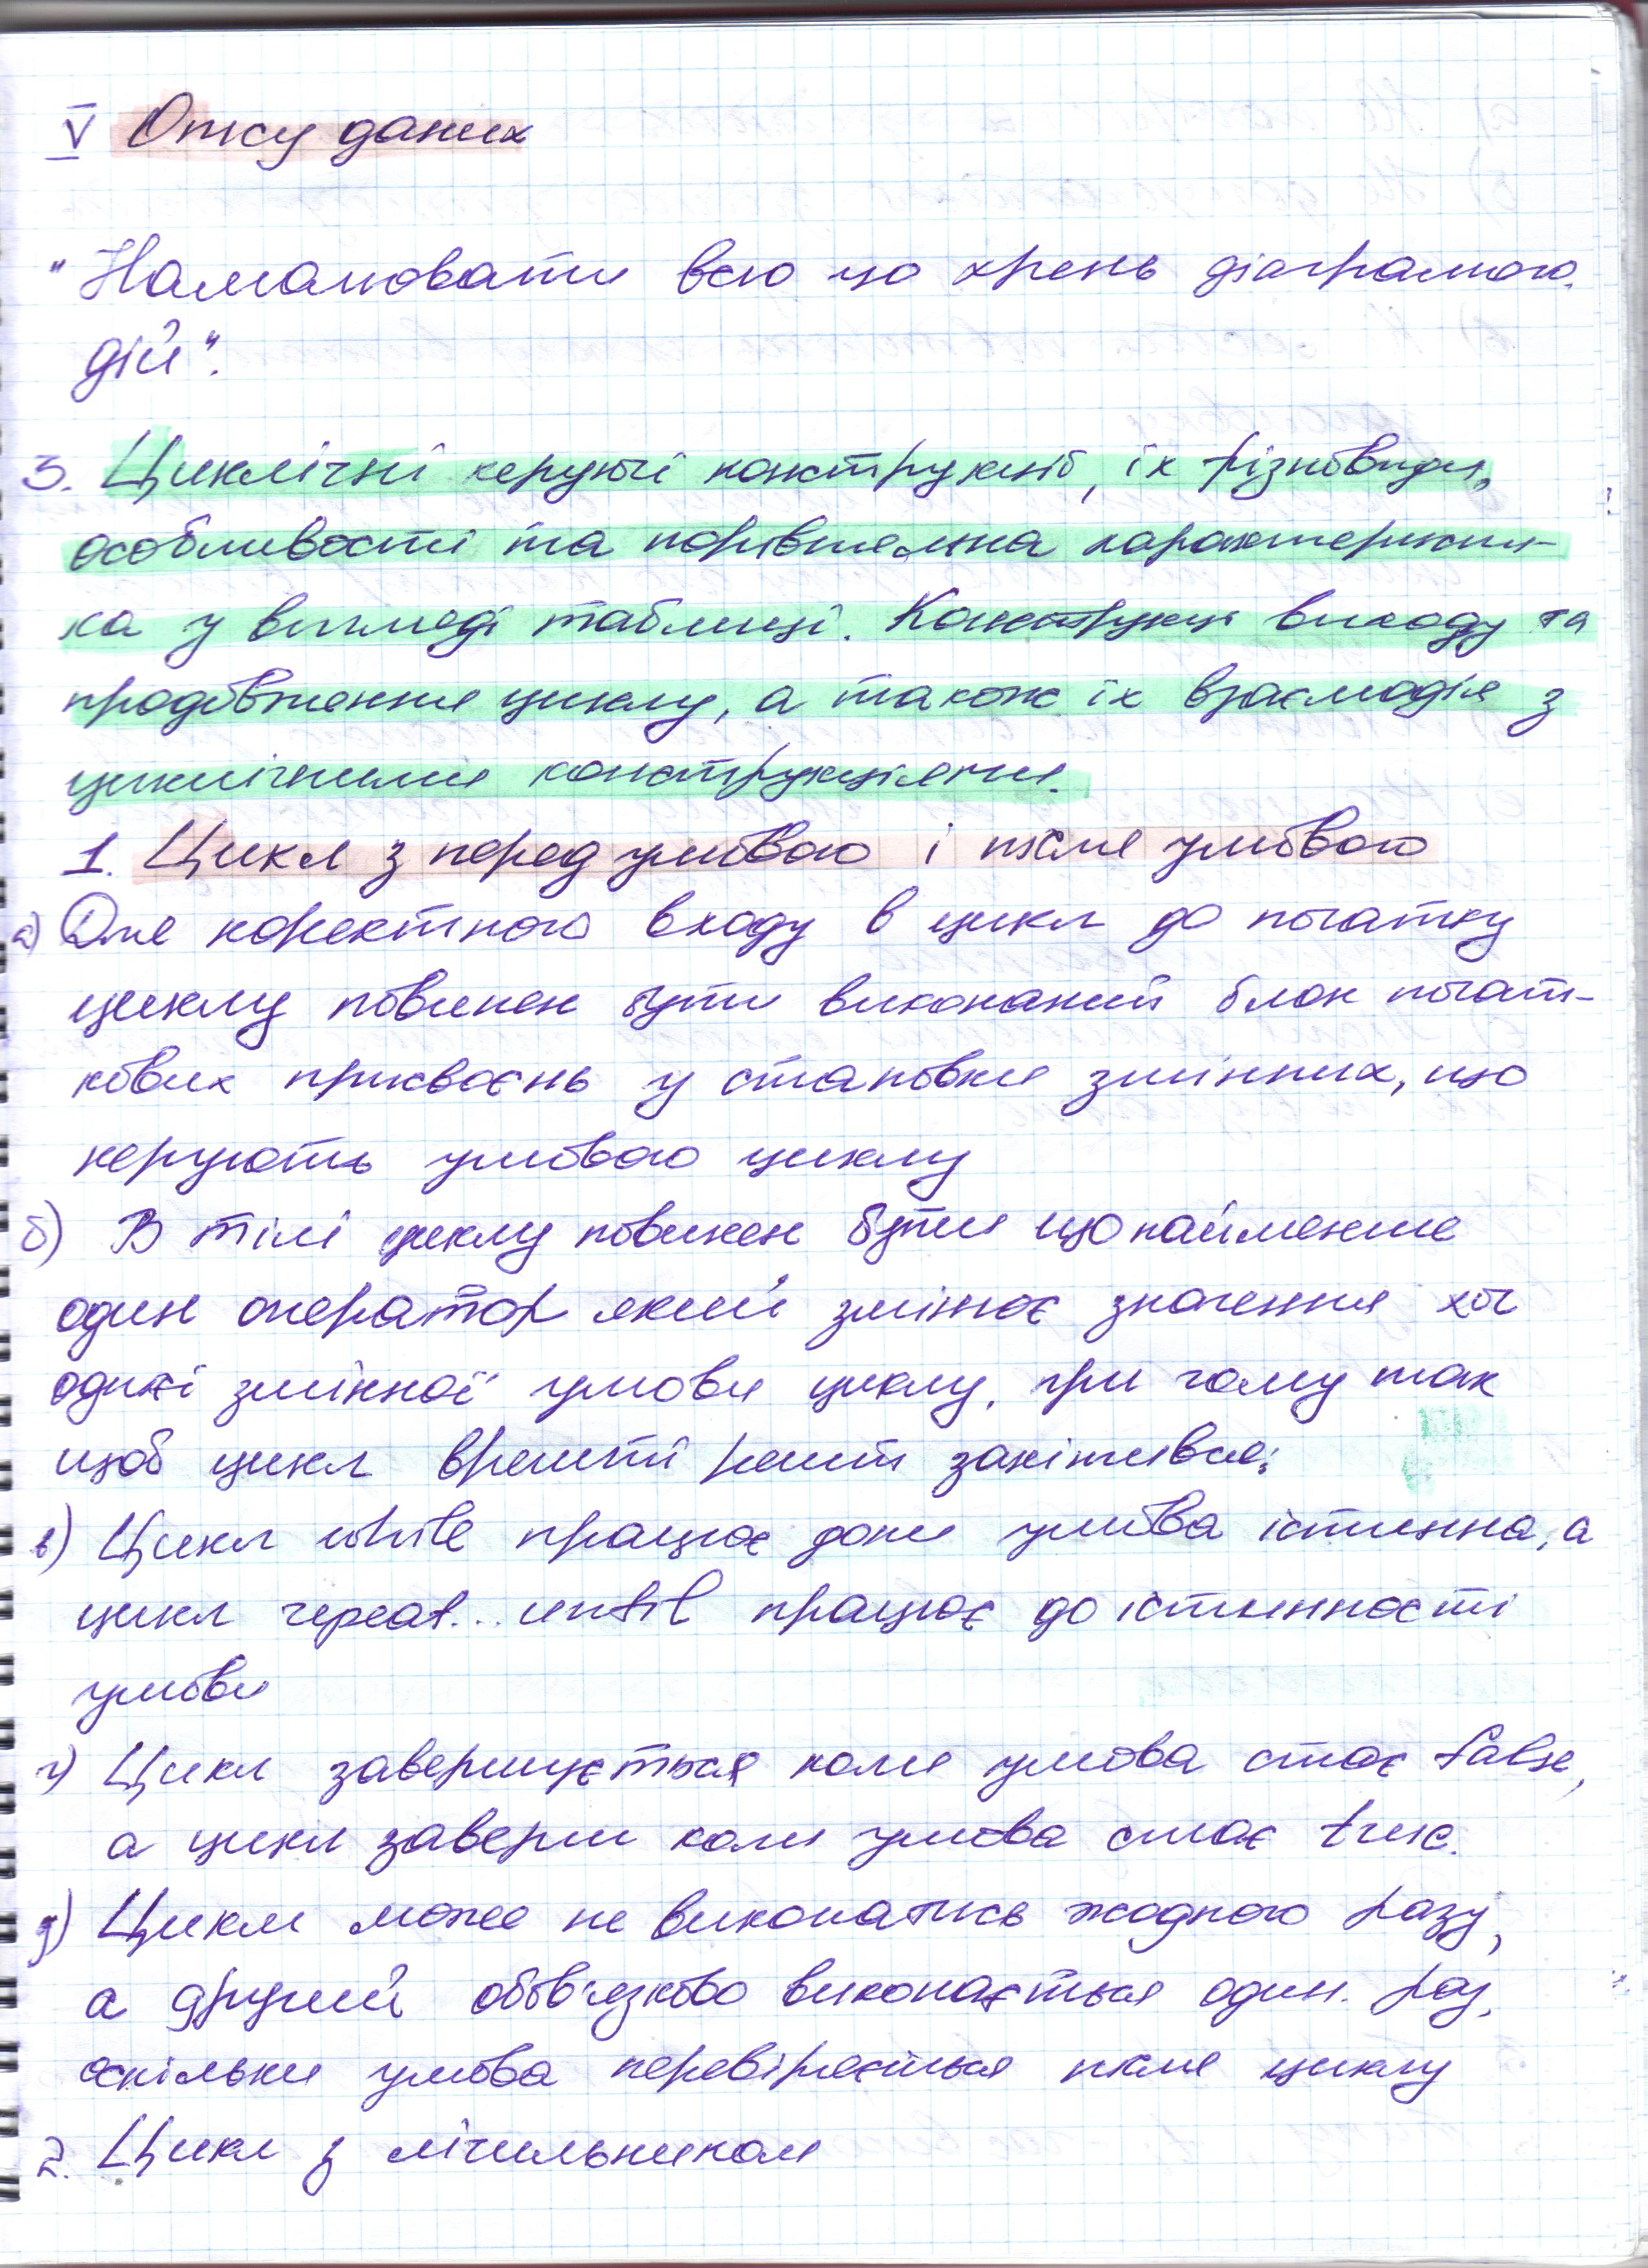 V Опису даних
"Намалювати всю цю хрень діаграмою
дій".
3. Циклічні керуючі конструкції, їх різновиди,
особливості та порівняльна характеристи-
ка у вигляді таблиці. Конструкції виходу та
продовження циклу, а також їх взаємодія з
циклічними конструкціями.
1. Цикл з перед умовою і після умовою
а) Для коректного входу в цикл до початку
циклу повинен бути виконаний блок почат-
кових присвоєнь установки змінних, що
керують умовою циклу
б) В тілі циклу повинен бути щонайменше
один оператор який змінює значення хоч
однієї змінної умови циклу, при чому так
щоб цикл врешті решт закінчився;
в) Цикл while працює доки умова істинна, а
цикл repeat...until працює до істинності
умови
г) Цикл завершується коли умова стає false,
а цикл заверш коли умова стає true.
д) Цикл може не виконатись жодного разу,
а другий обов'язково виконається один. раз,
оскільки умова перевіряється після циклу
2. Цикл з лічильником